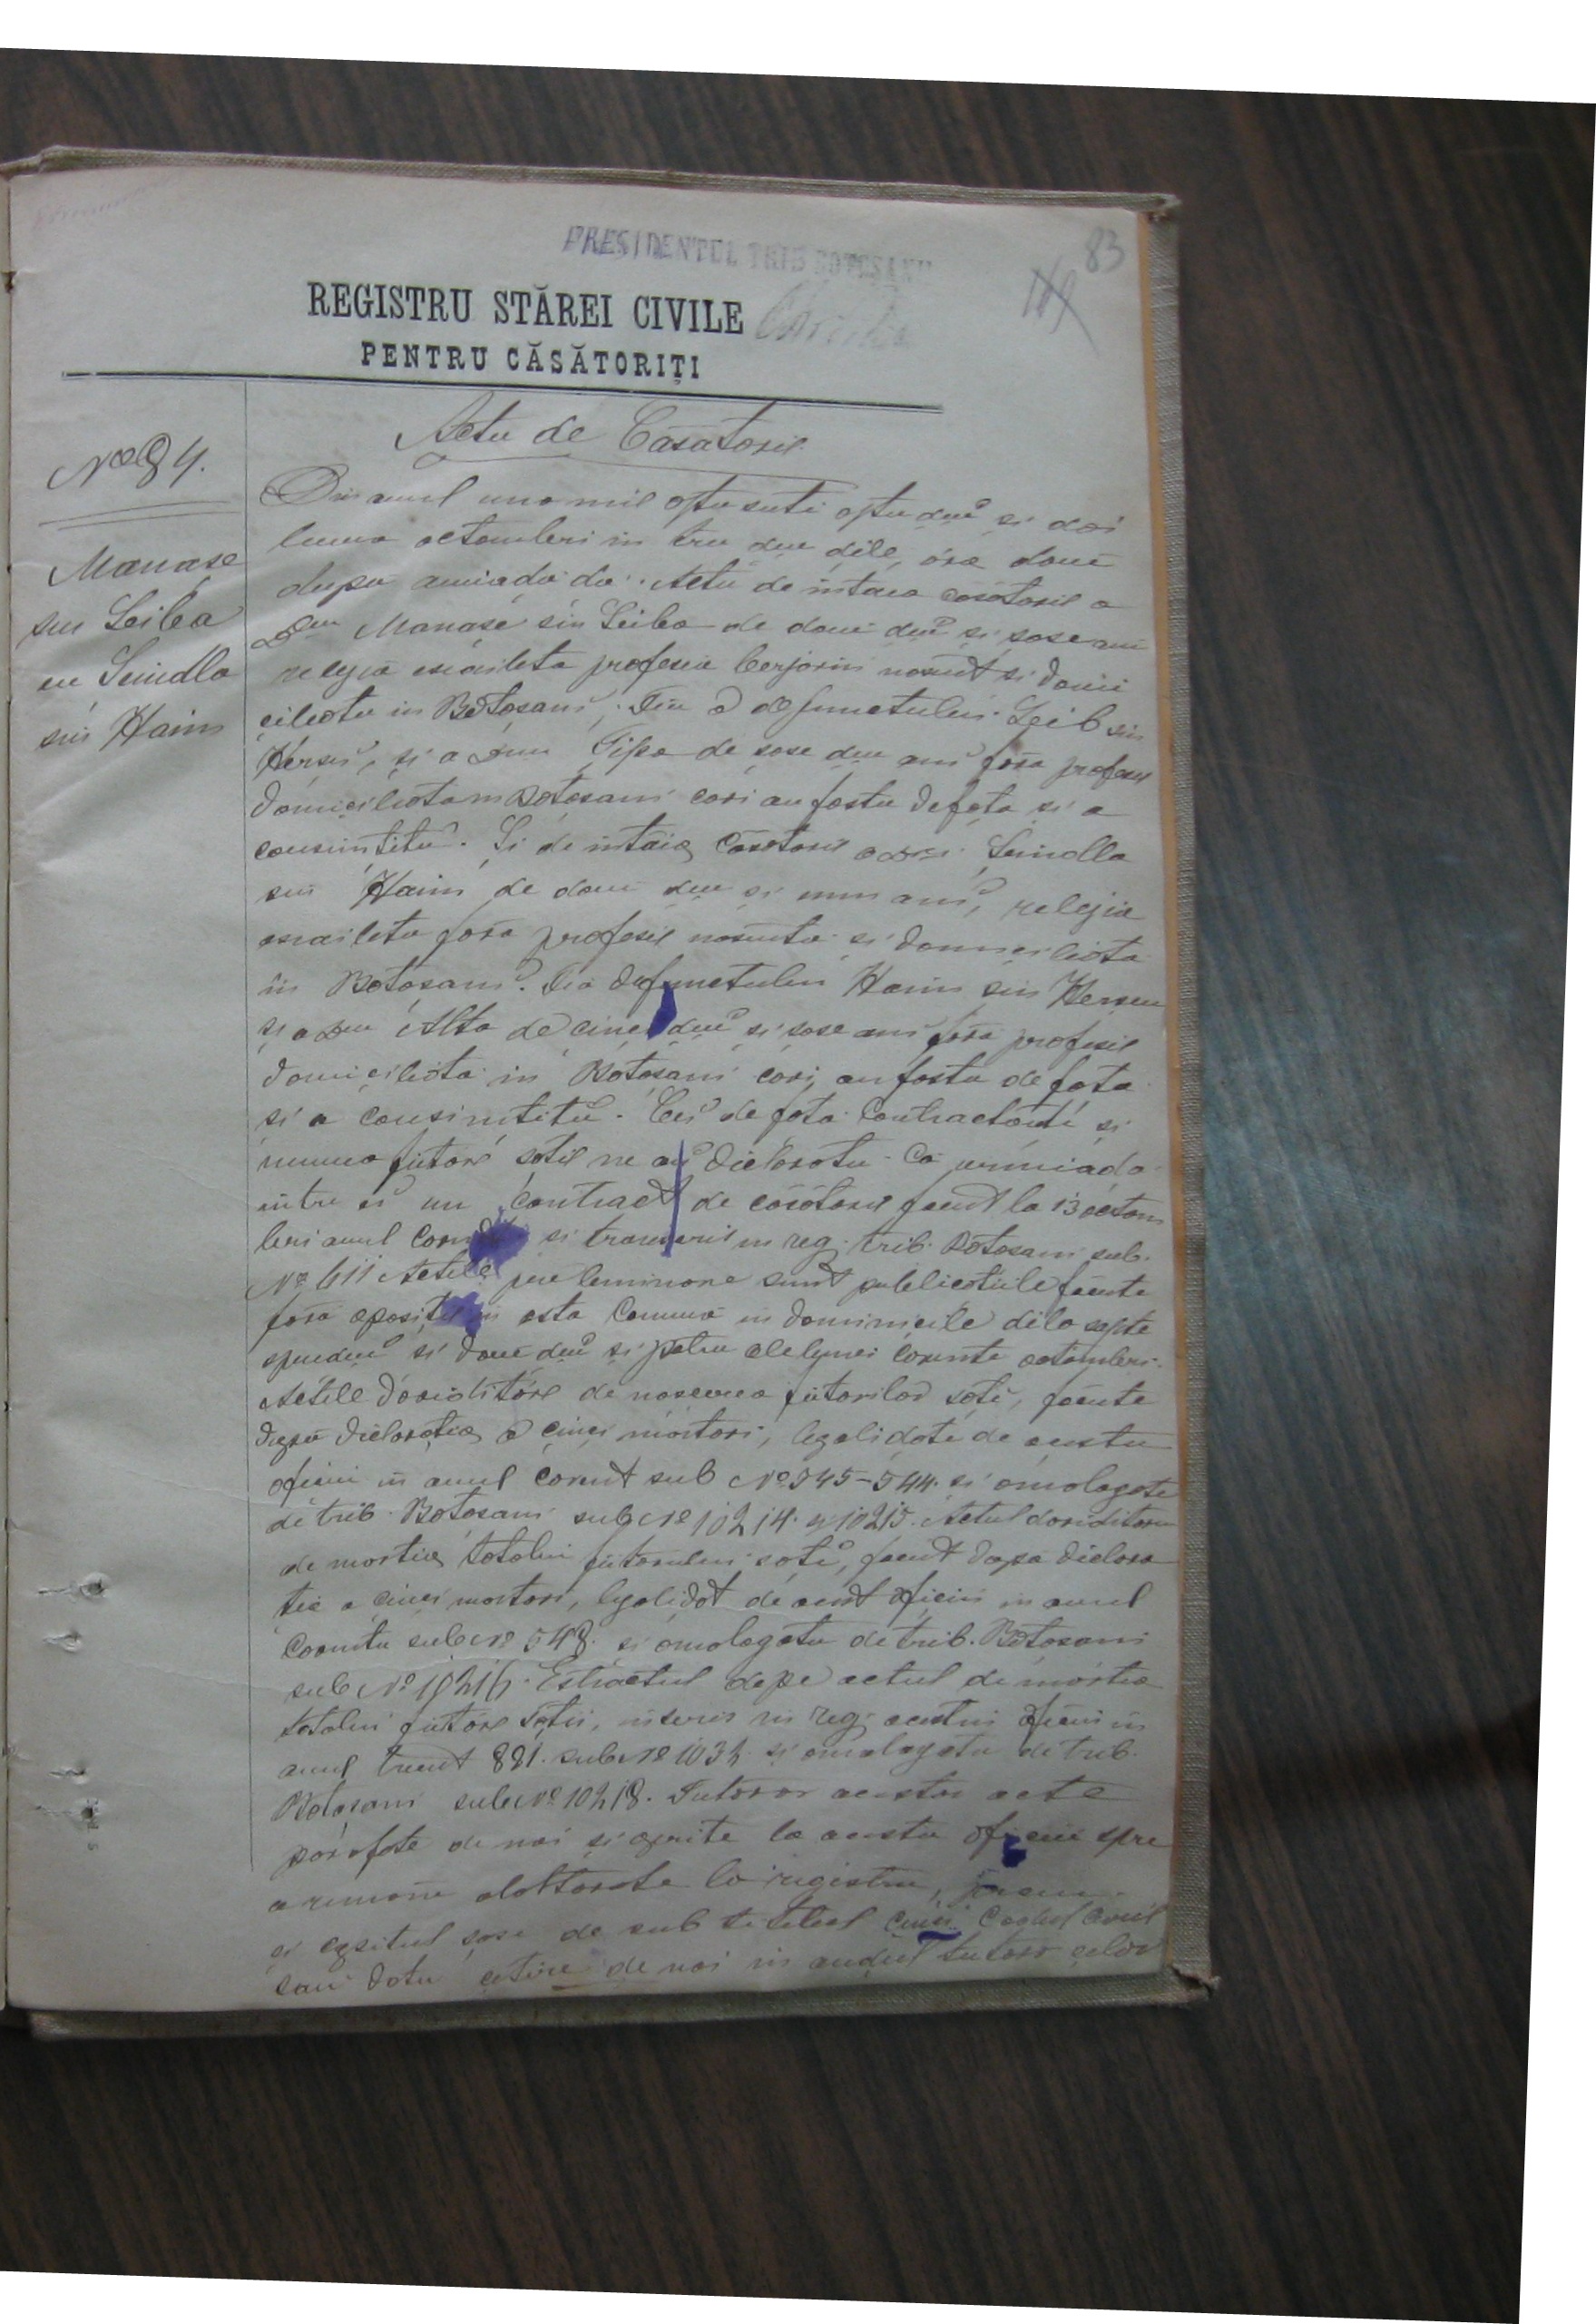 83
PRESIDENTUL TRIB BOTOȘANI
REGISTRU STĂREI CIVILE
PENTRU CĂSĂTORIȚI
No 84.
Manase
sin Leiba
cu Seindla
sin Haim
Actu de Casatorie
Din anul una mie optu suti optu deci si doi
luna octombri in trei deci dile, ora doue
dupa amiada di. Actu de intaia casatorie a
Dlui Manase sin Leiba de doue deci si sase ani
relegia israilita profesia nascut si domi
ciliatu in Botosani, Fiu a defunctului Leib sin
Hersu, si a Dnei Tipa de sase deci ani fora profesie
domiciliata in Botosani cari au fostu de fata si a
consimtitu. Si de intaia casatorie a Drei Seindla
sin Haim de doue deci si unu ani, relegia
israilita fora profesie nascuta si domiciliata
in Botosani. Fia defunctului Haim sin Herscu
si a Dnei Alta de cinci deci si sase ani fora profesie
domiciliata in Botosani cari au fostu de fata
si a consimtitu. Cei de fata contractanti si
numea fiitori sotii ne au diclaratu ca
intre ei un contract de casatorie facut la 13 octom
bri anul corent si transcris in reg. trib. Botosani sub.
No 611 Actele preleminare sunt publicatiile facute
fora opositii in asta comuna in dumineciile dila sapte
spredeci si doue deci si patru ale lunei corente octombri.
Actele doviditore de nascerea fiitorilor soti, facute
dupa diclaratia a cinci martori, legalidate de acestu
oficiu in anul corent sub No 545-544. si omologate
de trib. Botosani sub No 10214. si 10215. Actul doviditoriu
de mortia tatalui fiitorului sotu, facut dupa diclara
tia a cinci martori, legalidat de acest oficiu in anul
corentu sub No 548. si omologatu de trib. Botosani
sub No 10216. Estractul depe actul de mortia
tatalui fiitore sotii, inscris in reg. acestui oficiu in
anul trecut 881. sub No 1032 si omologatu de trib.
Botosani sub No 10218. Tutoror acestor acte
parafate de noi si oprite la acestu oficiu spre
a remane alaturate la registru,
si capitul sase de sub titlul cinci Codul Civil
sau datu cetire de noi in audul tutoror celor